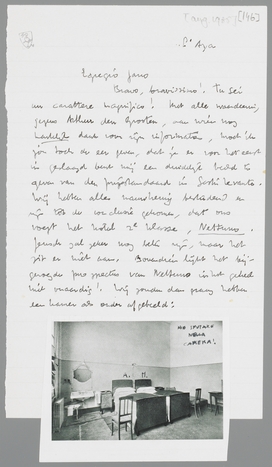 [aug 1935] [146]
l'Aya
Egregio Jano
Bravo, bravissimo! Tu sei
un carattere magnifico! Met alle waardeering,
jegens Arthur den Grooten, aan wien nog
dank voor zijn informaties, moet ik
jou toch de eer geven, dat je er voor het eerst
in geslaagd bent mij een duidelijk beeld te
geven van den prijsstandaard in Sestri Levante.
Wij hebben alles nauwkeurig bestudeerd en
zijn tot de conclusie gekomen, dat ons
voegt het hotel 2e klasse, Nettuno.
zal zeker nog beter zijn, maar het
zit er niet aan. Bovendien lijkt het bij-
gevoegde prospectus van Nettuno in het geheel
niet onaardig! Wij zouden dan graag hebben
een kamer als onder afgebeeld:
NO SPUTARE
NELLA
CAMERA!
A. M.